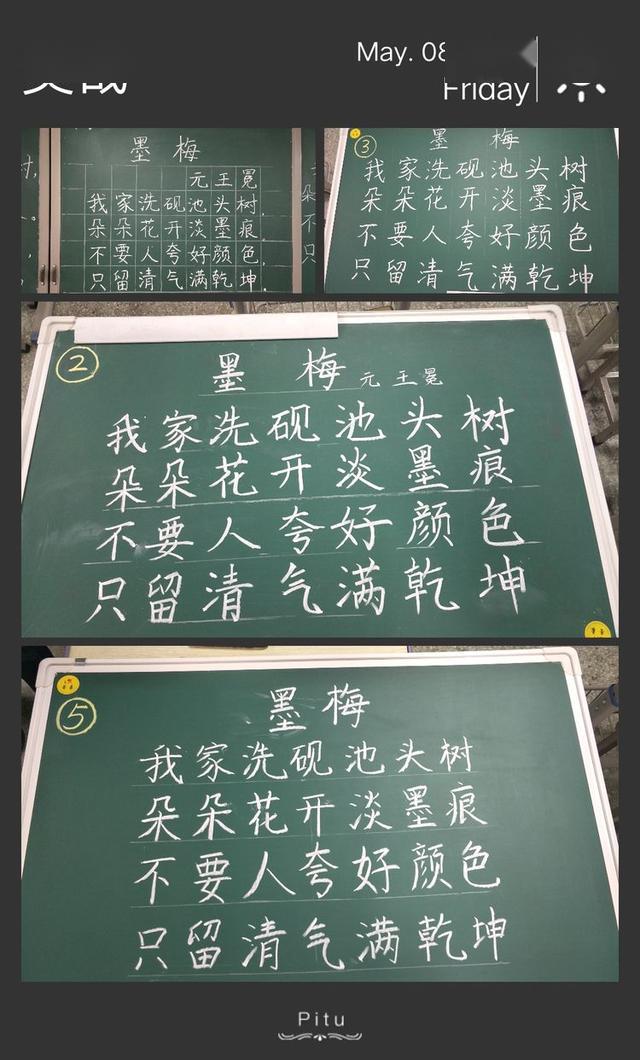 May. 08
Friday
墨 梅
元 王 冕
我家洗砚池头树,
朵朵花开淡墨痕
不要人夸好颜色,
只留清气满乾坤
③
墨 梅
我家洗砚池头树
朵朵花开淡墨痕
不要人夸好颜色
只留清气满乾坤
②
墨 梅 元 王 冕
我家洗砚池头树
朵朵花开淡墨痕
不要人夸好颜色
只留清气满乾坤
⑤
墨梅
我家洗砚池头树
朵朵花开淡墨痕
不要人夸好颜色
只留清气满乾坤
Pitu